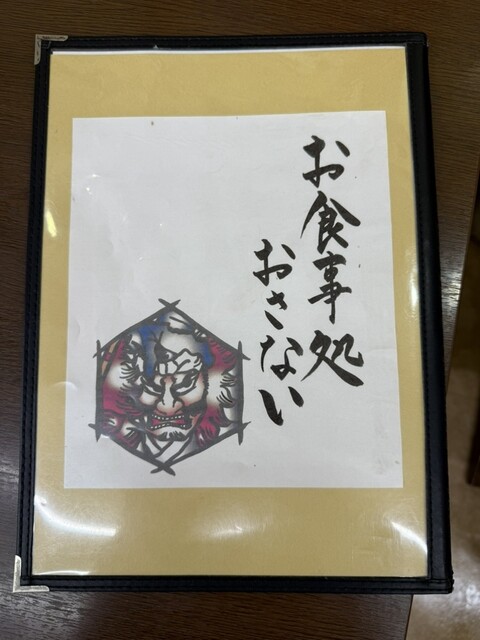 お食事処
おさない